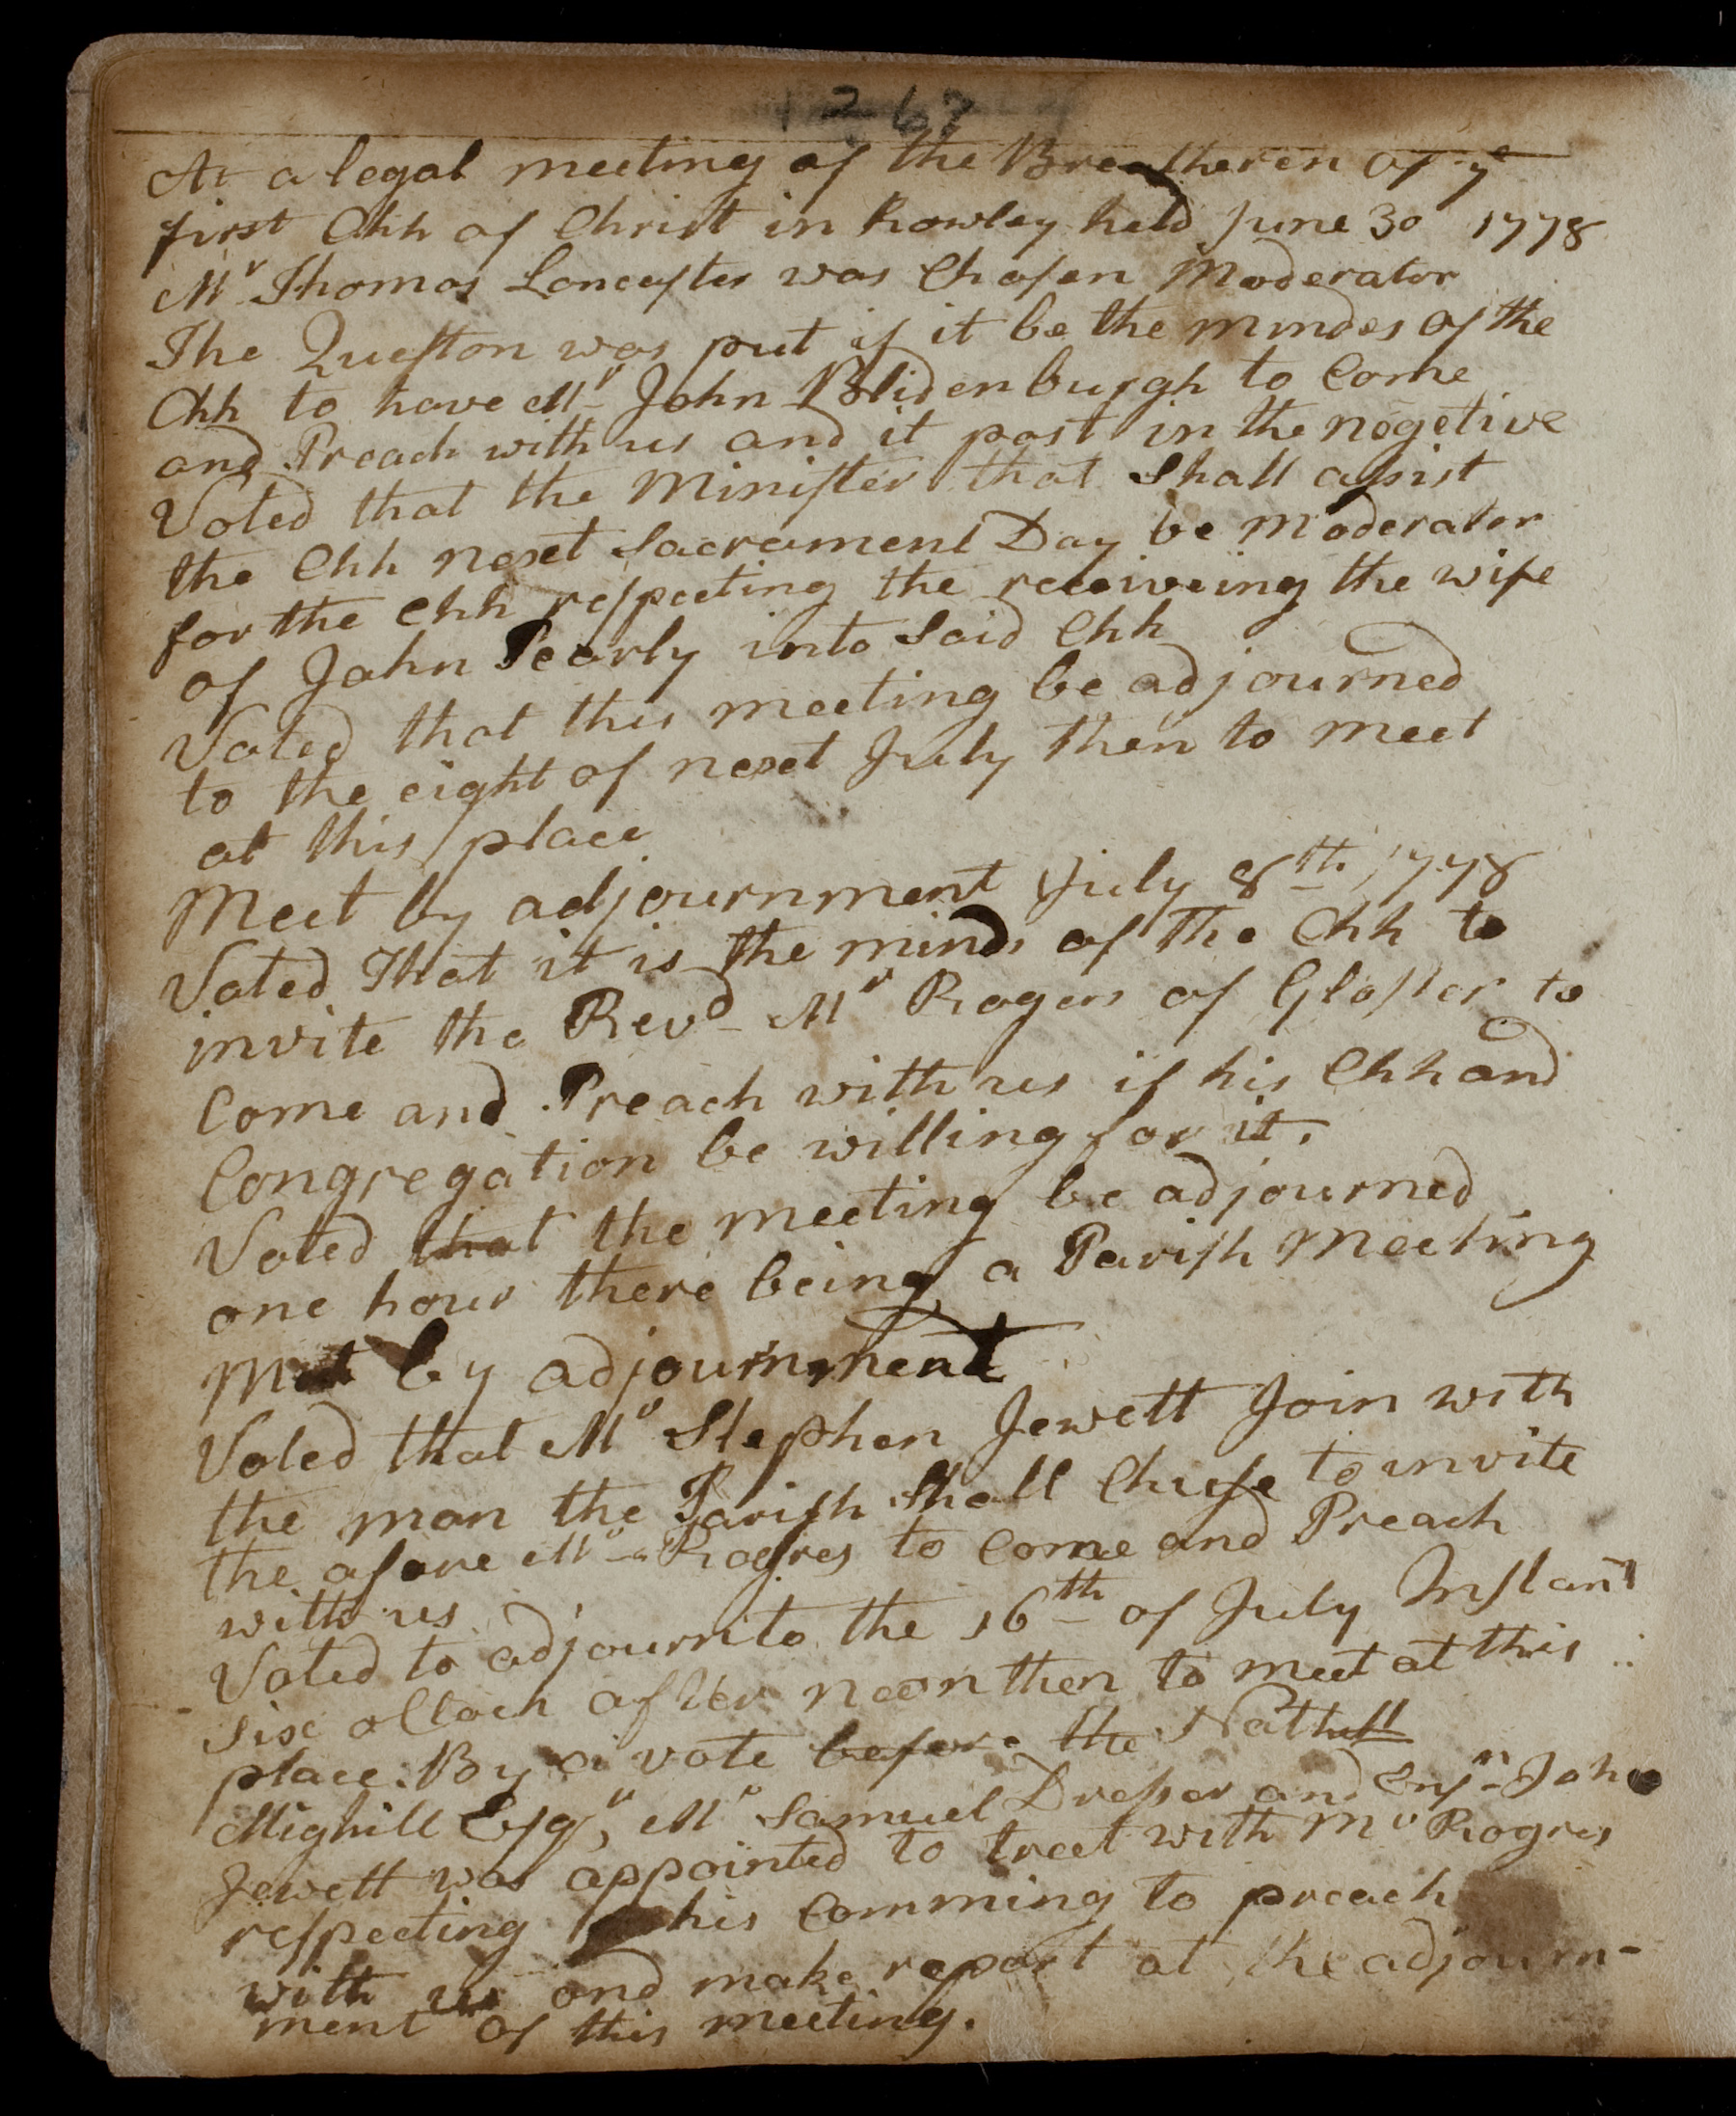 267
At a legal meeting of the Breatheren of ye
first Chh of Christ in Rowley held June 30 1778
Mr Thomas Lancaster was Chosen Moderator
The Queston was put if it be the mindes of the
Chh to have Mr John Blidenburgh to Come
and Preach with us and it past in the negetive
Voted that the Minister that Shall assist
the Chh next Sacrament Day be Moderator
for the Chh respecting the receiveing the wife
of John Pearly into Said Chh
Voted that this meeting be adjourned
to the eight of next July then to meet
at this place
Meet by adjournment July 8th 1778
Voted That it is the minds of the Chh to
invite the Revd Mr Rogers of Gloster to
Come and Preach with us if his Chh and
Congregation be willing for it.
Voted that the meeting be adjourned
one hour there being a Parish Meeting
Met by adjournment
Voted that Mr Stephen Jewett Join with
the man the Parish Shall Chuse to invite
the afore Mr Rogres to Come and Preach
with us
Voted to adjourn to the 16th of July Instant
Six oClock after noon then to meet at this
place. By a vote before the Nathll
Mighill Esqr, Mr Samuel Dresser and Ensn John
Jewett was appointed to treet with Mr Rogres
respecting his Comming to preach
with us and make report at the adjourn-
ment of this meeting.